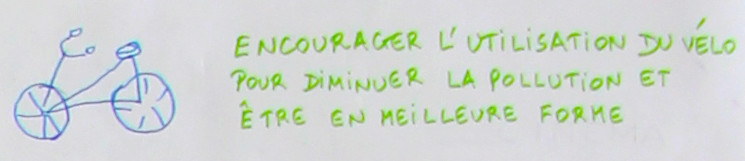 ENCOURAGER L'UTILISATION DU VÉLO
POUR DIMINUER LA POLLUTION ET
ÊTRE EN MEILLEURE FORME